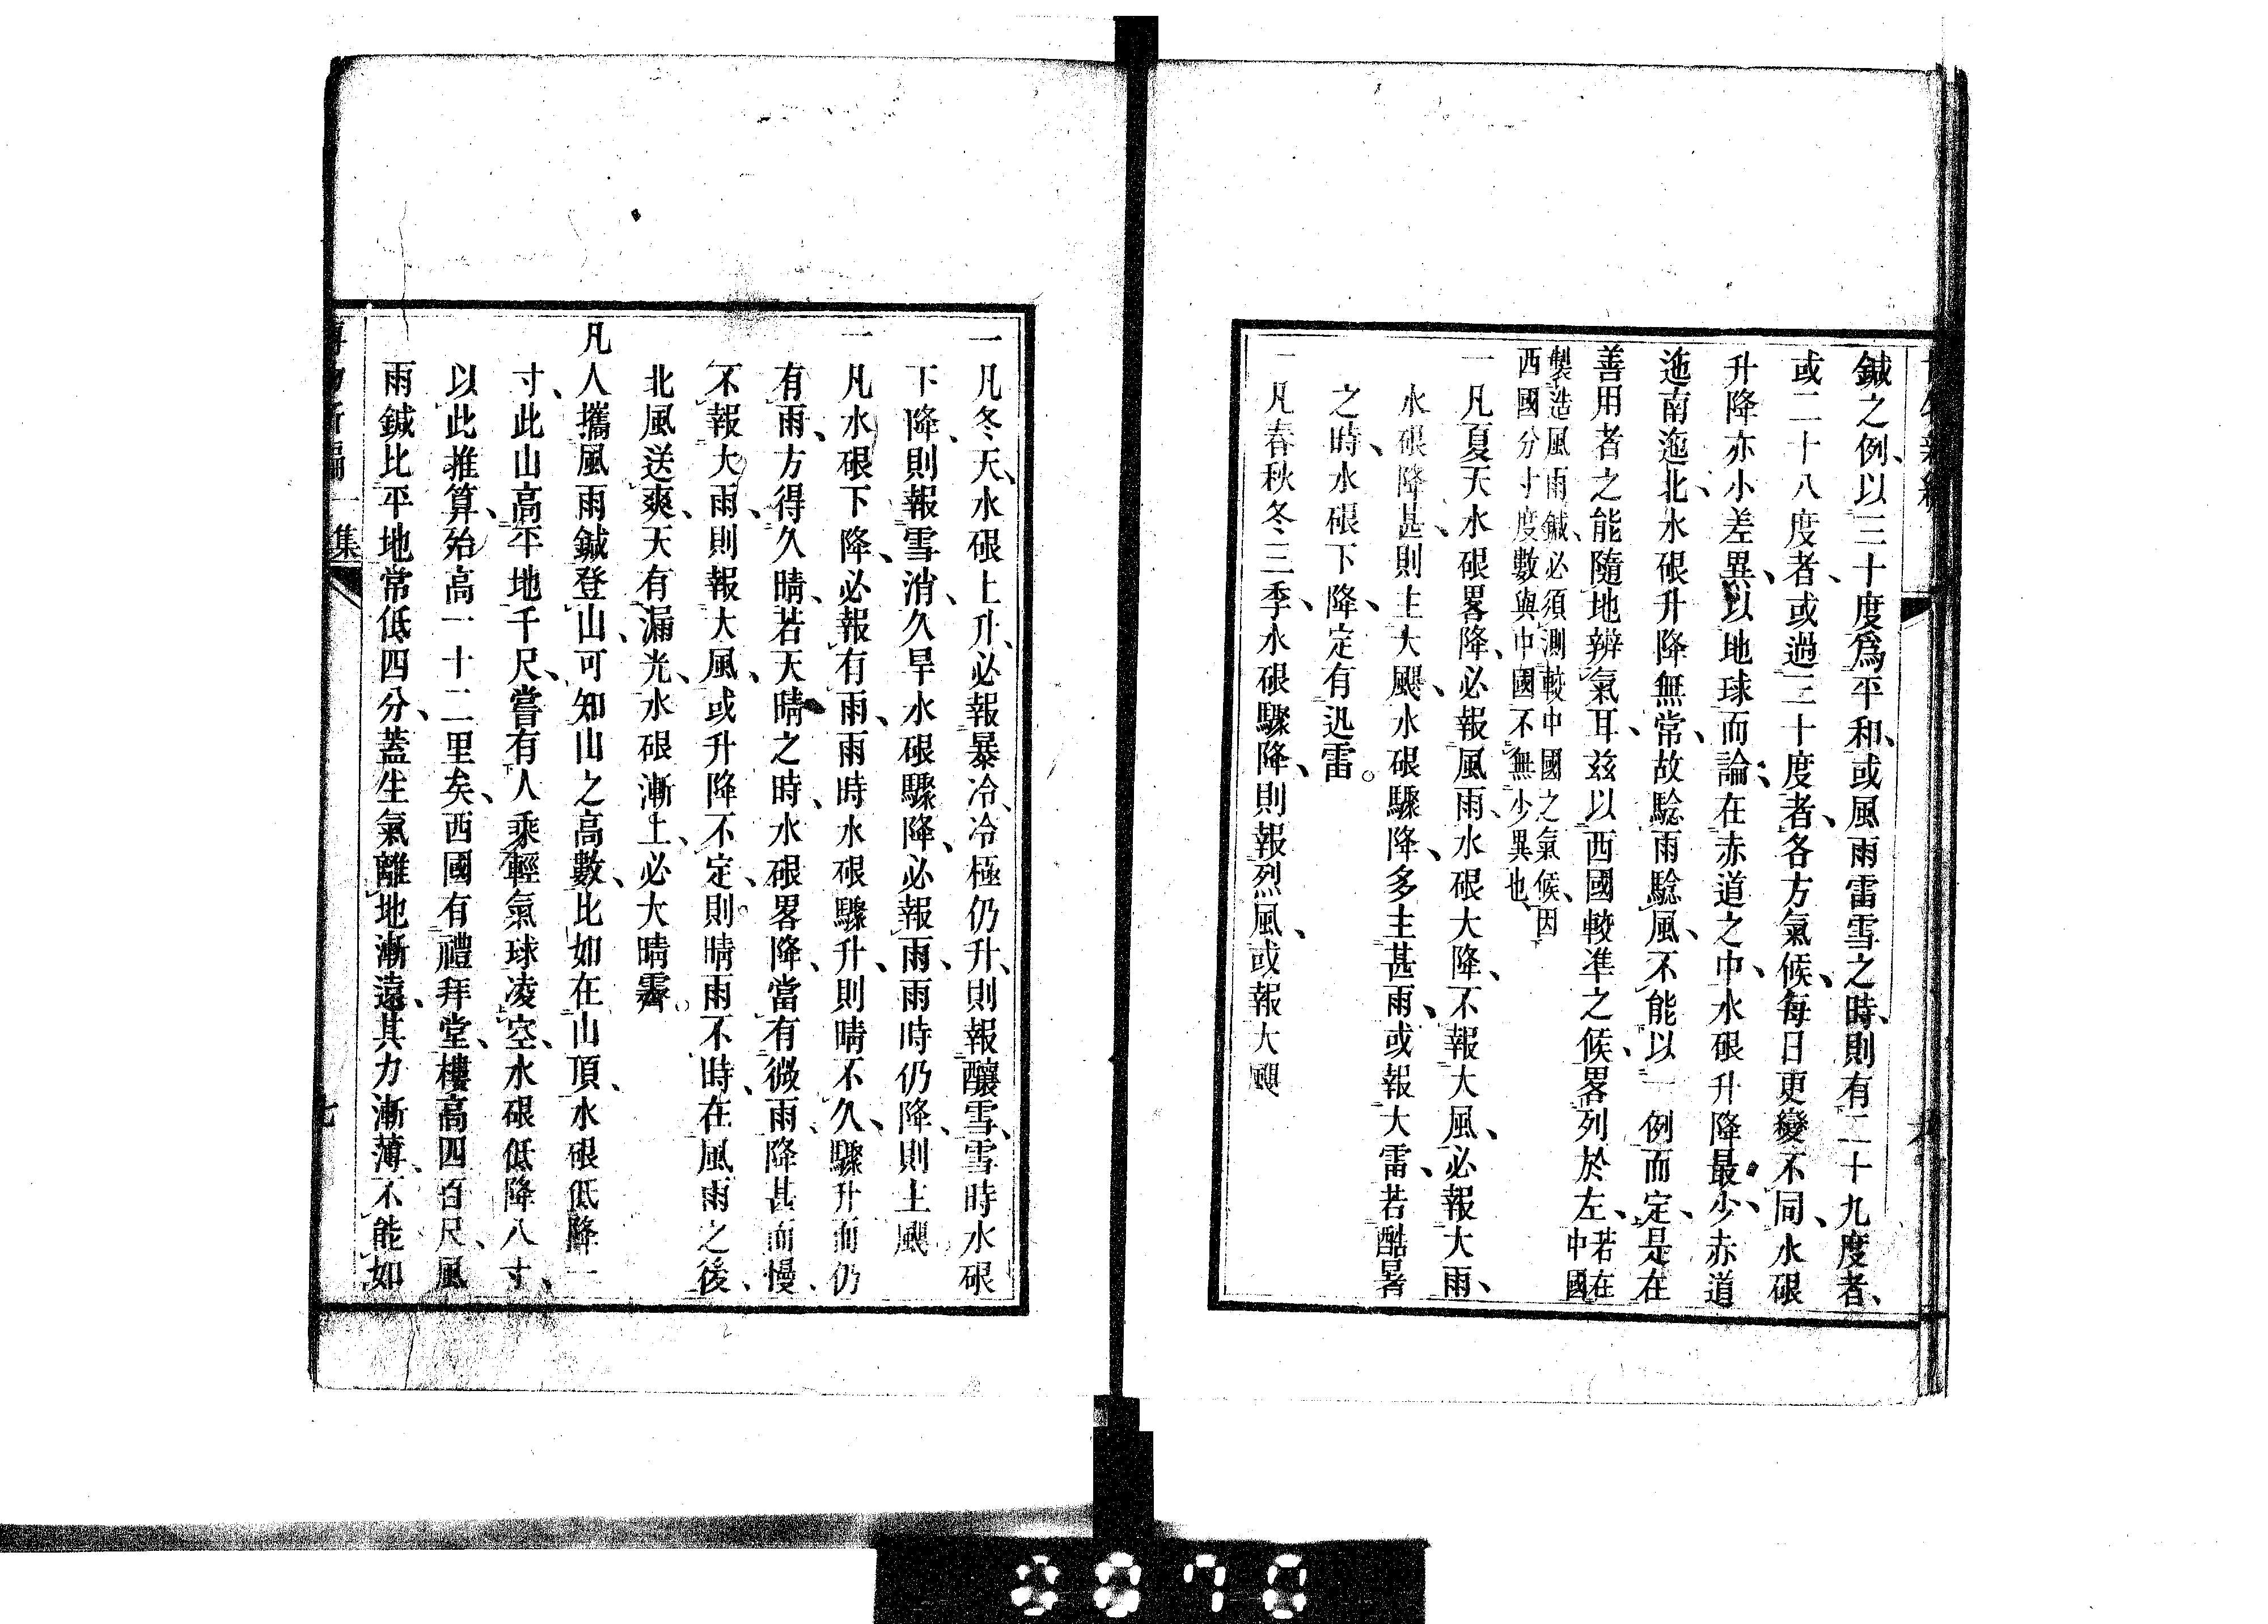 鍼之例、以三十度爲平和、或風雨雷雪之時、則有二十九度者、
或二十八度者、或過三十度者、各方氣候、每日更變不同、水硍
升降亦小差異、以地球而論、在赤道之中、水硍升降最少、赤道
迤南迤北、水硍升降無常、故騐雨騐風、不能以一例而定、是在
善用者之能隨地辨氣耳、玆以西國較準之候、畧列於左、若在中國
製造風雨鍼、必須測較中國之氣候、因
西國分寸度數與中國不無少異也、
一凡夏天水硍畧降、必報風雨、水硍大降、不報大風、必報大雨、
水硍降甚、則主大颶、水硍驟降、多主甚雨、或報大雷、若酷暑
之時、水硍下降、定有迅雷。
一凡春秋冬三季、水硍驟降、則報烈風、或報大颶
一凡冬天、水硍上升、必報暴冷、冷極仍升、則報釀雪、雪時水硍
下降、則報雪消、久旱水硍驟降、必報雨、雨時仍降、則主颶
一凡水硍下降、必報有雨、雨時水硍驟升、則晴不久、驟升而仍
有雨、方得久晴、若天晴之時、水硍畧降、當有微雨、降甚而慢、
不報大雨、則報大風、或升降不定、則晴雨不時、在風雨之後、
北風送爽、天有漏光、水硍漸上、必大晴霽。
凡人攜風雨鍼登山、可知山之高數、比如在山頂、水硍低降一
寸、此山高平地千尺、嘗有人乘輕氣球凌空、水硍低降八寸、
以此推算、殆高一十二里矣、西國有禮拜堂、樓高四百尺、風
雨鍼比平地常低四分、蓋生氣離地漸遠、其力漸薄、不能如
博物新編 一集 七